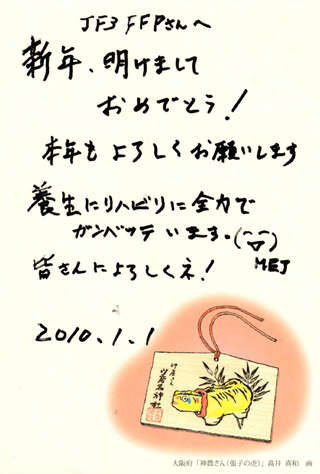 JF3FFPさんへ
新年、明けまして
おめでとう!
本年もよろしくお願いします
養生にリハビリに全力で
ガンベッテいます。
MEJ
皆さんによろしくネ!
2010.1.1
神農さん
少彦名神社
大阪府「神農さん(張子の虎)」高井 喜和 画